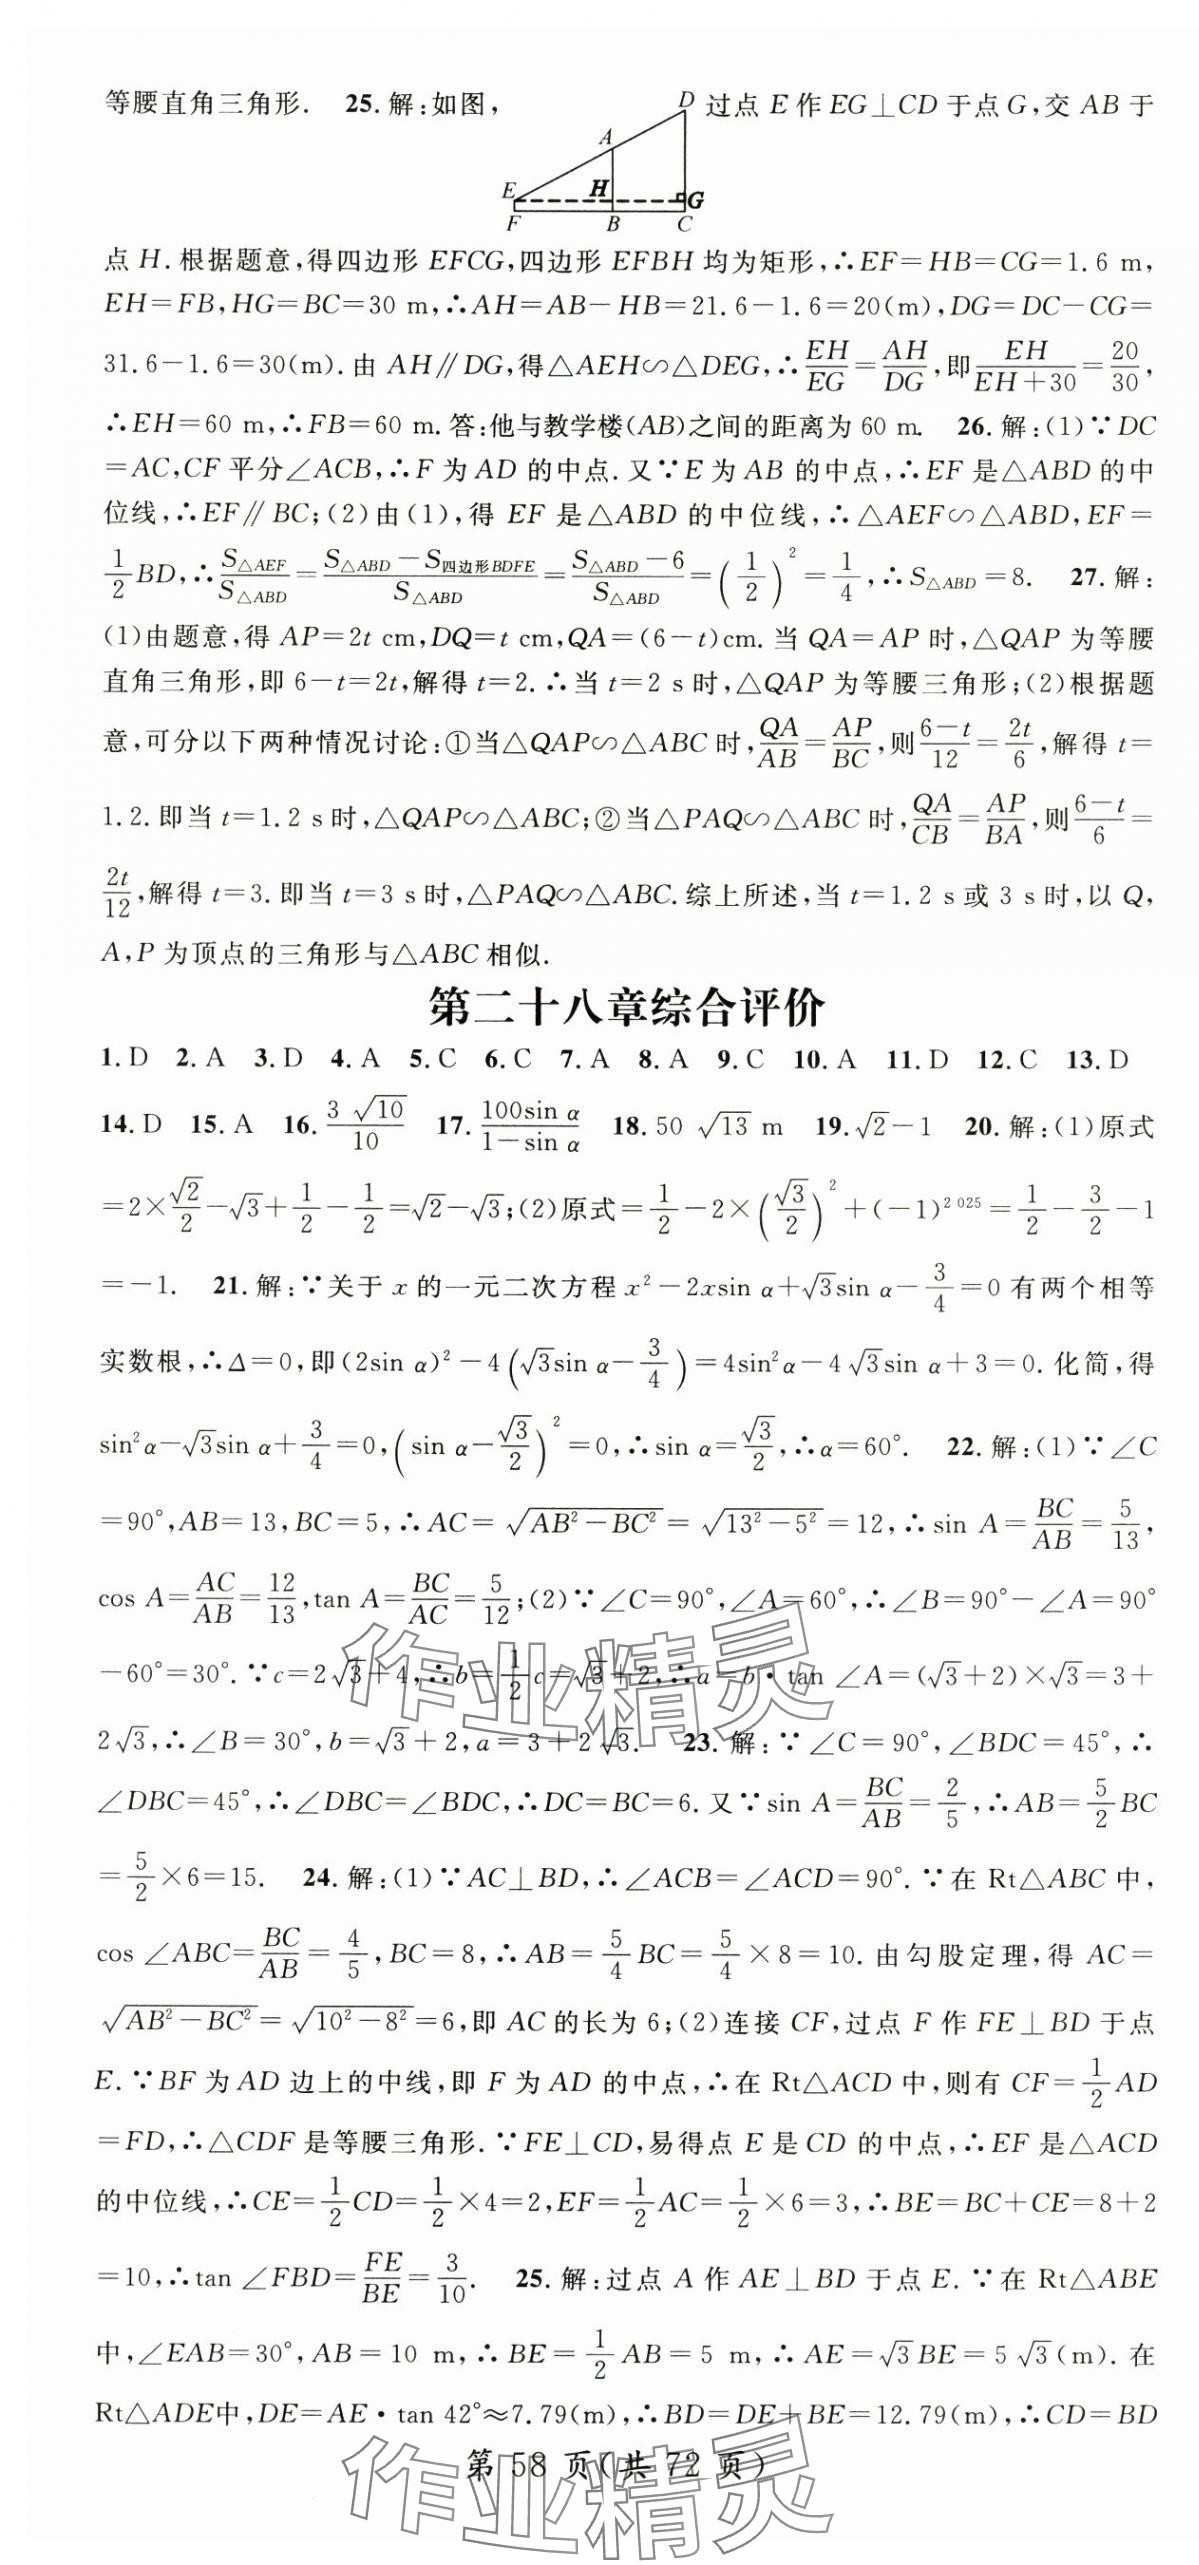 等腰直角三角形. 25.解:如图, D 过点 E 作 EG⊥CD 于点 G,交 AB 于
A
E H G
F B C
点 H.根据题意,得四边形 EFCG,四边形 EFBH 均为矩形,∴EF=HB=CG=1.6 m,
EH=FB,HG=BC=30 m,∴AH=AB-HB=21.6-1.6=20(m),DG=DC-CG=
31.6-1.6=30(m).由 AH∥DG,得△AEH∽△DEG,∴EH/EG=AH/DG,即EH/(EH+30)=20/30,
∴EH=60 m,∴FB=60 m.答:他与教学楼(AB)之间的距离为 60 m. 26.解:(1)∵DC
=AC,CF 平分∠ACB,∴F 为 AD 的中点.又∵E 为 AB 的中点,∴EF 是△ABD 的中
位线,∴EF∥BC;(2)由(1),得 EF 是△ABD 的中位线,∴△AEF∽△ABD,EF=
1/2 BD,∴S△AEF/S△ABD=(S△ABD-S四边形BDFE)/S△ABD=(S△ABD-6)/S△ABD=(1/2)²=1/4,∴S△ABD=8. 27.解:
(1)由题意,得 AP=2t cm,DQ=t cm,QA=(6-t)cm.当 QA=AP 时,△QAP 为等腰
直角三角形,即 6-t=2t,解得 t=2.∴当 t=2 s 时,△QAP 为等腰三角形;(2)根据题
意,可分以下两种情况讨论:①当△QAP∽△ABC 时,QA/AB=AP/BC,则(6-t)/12=2t/6,解得 t=
1.2.即当 t=1.2 s 时,△QAP∽△ABC;②当△PAQ∽△ABC 时,QA/CB=AP/BA,则(6-t)/6=
2t/12,解得 t=3.即当 t=3 s 时,△PAQ∽△ABC.综上所述,当 t=1.2 s 或 3 s 时,以 Q,
A,P 为顶点的三角形与△ABC 相似.
第二十八章综合评价
1.D 2.A 3.D 4.A 5.C 6.C 7.A 8.A 9.C 10.A 11.D 12.C 13.D
14.D 15.A 16.3√10/10 17.100sin α/(1-sin α) 18.50√13 m 19.√2-1 20.解:(1)原式
=2×√2/2-√3+1/2-1/2=√2-√3;(2)原式=1/2-2×(√3/2)²+(-1)²⁰²⁵=1/2-3/2-1
=-1. 21.解:∵关于 x 的一元二次方程 x²-2xsin α+√3sin α-3/4=0 有两个相等
实数根,∴Δ=0,即(2sin α)²-4(√3sin α-3/4)=4sin²α-4√3sin α+3=0.化简,得
sin²α-√3sin α+3/4=0,(sin α-√3/2)²=0,∴sin α=√3/2,∴α=60°. 22.解:(1)∵∠C
=90°,AB=13,BC=5,∴AC=√(AB²-BC²)=√(13²-5²)=12,∴sin A=BC/AB=5/13,
cos A=AC/AB=12/13,tan A=BC/AC=5/12;(2)∵∠C=90°,∠A=60°,∴∠B=90°-∠A=90°
-60°=30°.∵c=2√3+4,∴b=1/2 c=√3+2,∴a=b·tan ∠A=(√3+2)×√3=3+
2√3,∴∠B=30°,b=√3+2,a=3+2√3. 23.解:∵∠C=90°,∠BDC=45°,∴
∠DBC=45°,∴∠DBC=∠BDC,∴DC=BC=6.又∵sin A=BC/AB=2/5,∴AB=5/2 BC
=5/2×6=15. 24.解:(1)∵AC⊥BD,∴∠ACB=∠ACD=90°.∵在 Rt△ABC 中,
cos ∠ABC=BC/AB=4/5,BC=8,∴AB=5/4 BC=5/4×8=10.由勾股定理,得 AC=
√(AB²-BC²)=√(10²-8²)=6,即 AC 的长为 6;(2)连接 CF,过点 F 作 FE⊥BD 于点
E.∵BF 为 AD 边上的中线,即 F 为 AD 的中点,∴在 Rt△ACD 中,则有 CF=1/2 AD
=FD,∴△CDF 是等腰三角形.∵FE⊥CD,易得点 E 是 CD 的中点,∴EF 是△ACD
的中位线,∴CE=1/2 CD=1/2×4=2,EF=1/2 AC=1/2×6=3,∴BE=BC+CE=8+2
=10,∴tan ∠FBD=FE/BE=3/10. 25.解:过点 A 作 AE⊥BD 于点 E.∵在 Rt△ABE
中,∠EAB=30°,AB=10 m,∴BE=1/2 AB=5 m,∴AE=√3BE=5√3(m).在
Rt△ADE中,DE=AE·tan 42°≈7.79(m),∴BD=DE+BE=12.79(m),∴CD=BD
第 58 页(共 72 页)
作业精灵
作业精灵